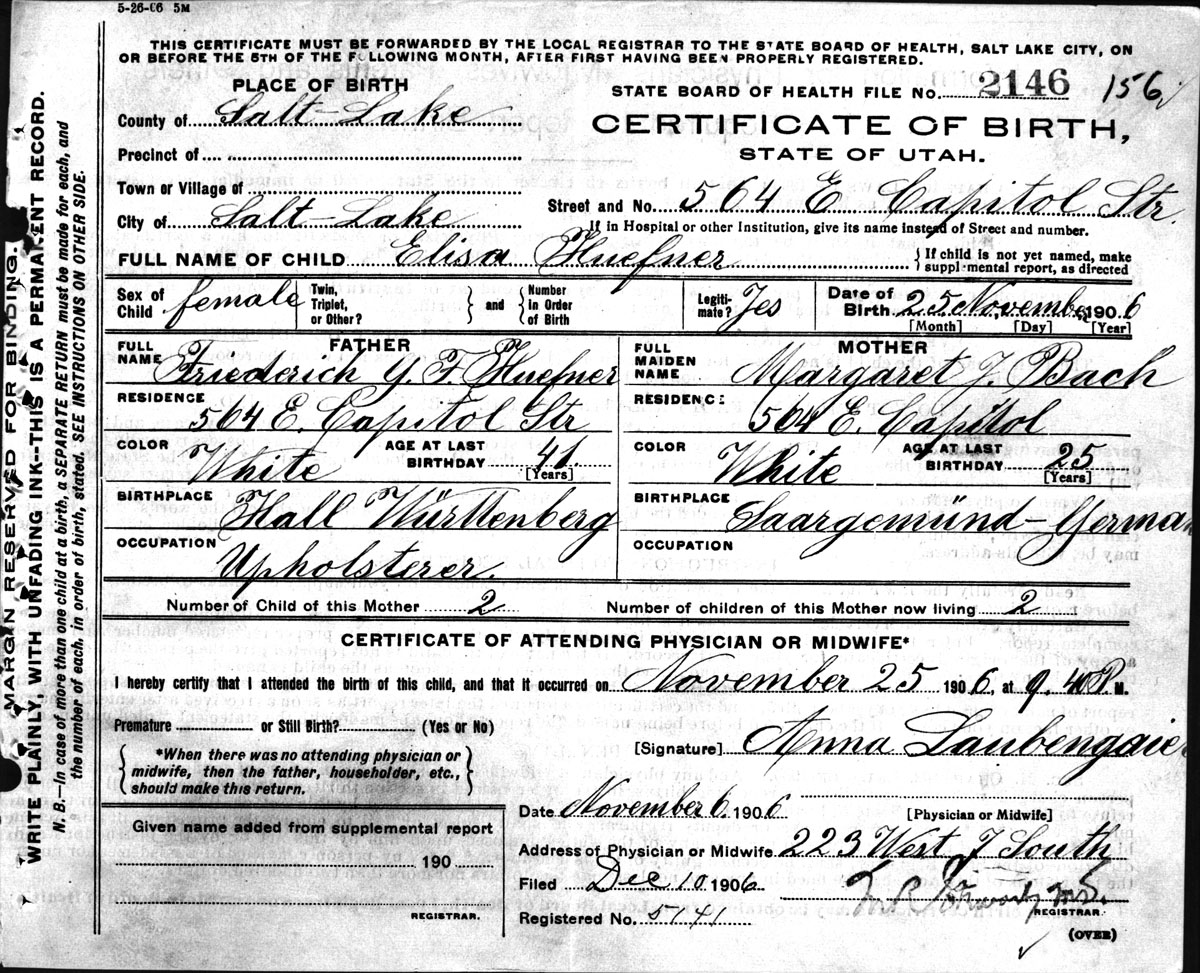 5-26-06 5M
THIS CERTIFICATE MUST BE FORWARDED BY THE LOCAL REGISTRAR TO THE STATE BOARD OF HEALTH, SALT LAKE CITY, ON
OR BEFORE THE 5TH OF THE FOLLOWING MONTH, AFTER FIRST HAVING BEEN PROPERLY REGISTERED.
PLACE OF BIRTH
STATE BOARD OF HEALTH FILE No. 2146 156
County of Salt-Lake
CERTIFICATE OF BIRTH,
STATE OF UTAH.
Precinct of
Town or Village of
Street and No. 564 E Capitol Str.
City of Salt-Lake
If in Hospital or other Institution, give its name instead of Street and number.
FULL NAME OF CHILD Elisa Huefner
If child is not yet named, make
supplemental report, as directed
Sex of Child female
Twin, Triplet, or Other? and Number in Order of Birth
Legitimate? Yes
Date of Birth 25 November 1906
[Month] [Day] [Year]
FATHER
FULL NAME Friederich G. F. Huefner
RESIDENCE 564 E. Capitol Str
COLOR White AGE AT LAST BIRTHDAY 41 [Years]
BIRTHPLACE Hall Württenberg
OCCUPATION Upholsterer.
MOTHER
FULL MAIDEN NAME Margaret J. Bach
RESIDENCE 564 E. Capitol
COLOR White AGE AT LAST BIRTHDAY 25 [Years]
BIRTHPLACE Saargemünd-German
OCCUPATION
Number of Child of this Mother 2 Number of children of this Mother now living 2
CERTIFICATE OF ATTENDING PHYSICIAN OR MIDWIFE*
I hereby certify that I attended the birth of this child, and that it occurred on November 25 1906, at 9.40 P. M.
Premature or Still Birth? (Yes or No)
[Signature] Anna Laubengaie
*When there was no attending physician or
midwife, then the father, householder, etc.,
should make this return.
Date November 6. 1906 [Physician or Midwife]
Given name added from supplemental report
190
REGISTRAR.
Address of Physician or Midwife 223 West 7 South
Filed Dec 10 1906
REGISTRAR.
Registered No. 5141
(OVER)
MARGIN RESERVED FOR BINDING.
WRITE PLAINLY, WITH UNFADING INK--THIS IS A PERMANENT RECORD.
N. B.—In case of more than one child at a birth, a SEPARATE RETURN must be made for each, and
the number of each, in order of birth, stated. SEE INSTRUCTIONS ON OTHER SIDE.